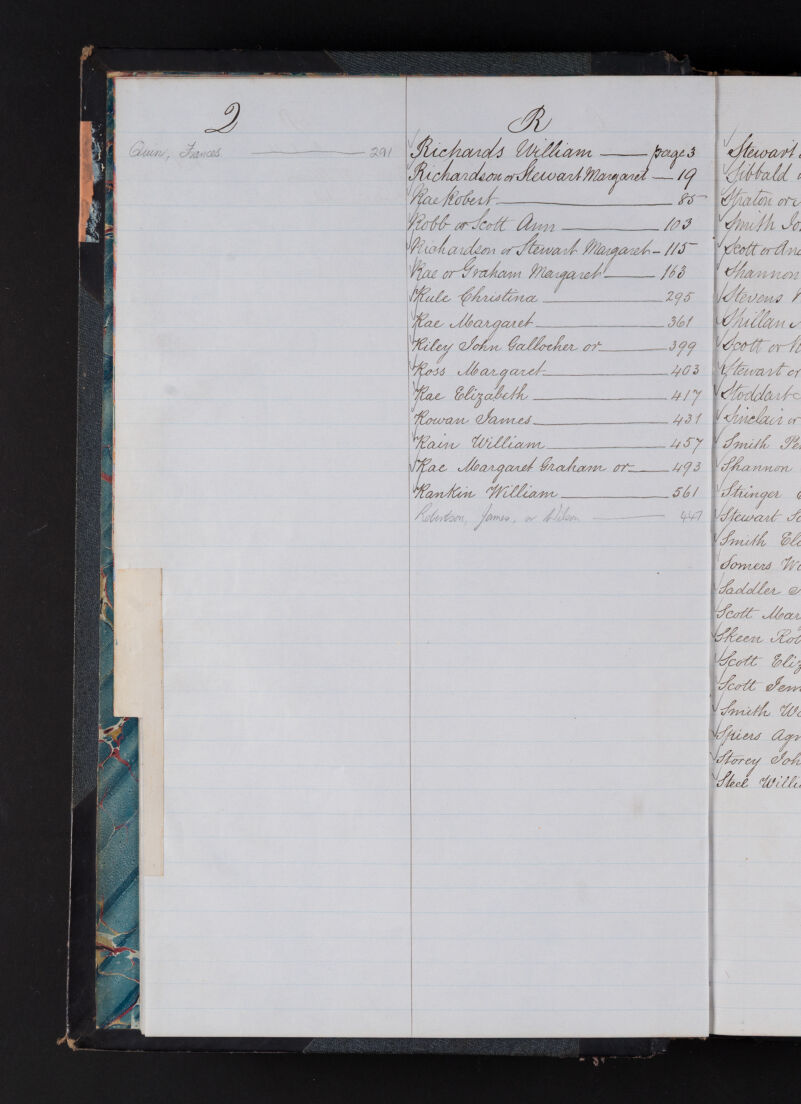 Q
Quin, Frances 291
R
Richards William page 3
Richardson or Stewart Margaret 19
Rae Robert 85
Robb or Scott Ann 103
Richardson or Stewart Margaret 115
Rae or Graham Margaret 163
Rule Christina 295
Rae Margaret 361
Riley John Gallocher or 399
Ross Margaret 403
Rae Elizabeth 417
Rowan James 431
Rain William 457
Rae Margaret Graham or 493
Rankin William 561
Robertson, James, or Wilson 447
Stewart
Sibbald
Straton or
Smith
Scott or
Shannon
Stevens
Shillan
Scott or
Stewart or
Stoddart
Sinclair or
Smith
Shannon
Stringer
Stewart
Smith
Somers
Saddler
Scott
Skeen
Scott
Scott
Smith
Spiers
Storey
Steel